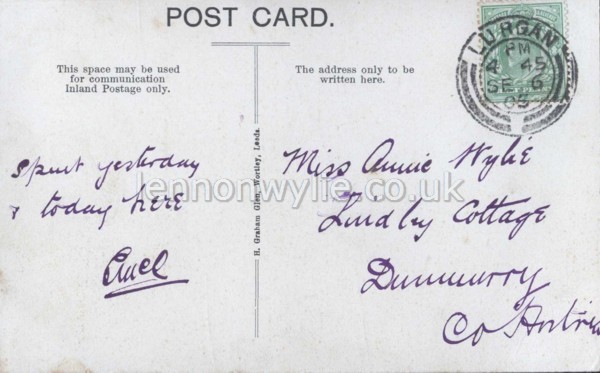 POST CARD.
This space may be used
for communication
Inland Postage only.
The address only to be
written here.
LURGAN
PM
4 45
SE 6
H. Graham Glen, Wortley, Leeds.
spent yesterday
& today here
Miss Annie Wylie
Lindby Cottage
Dunmurry
Co Antrim
lennonwylie.co.uk